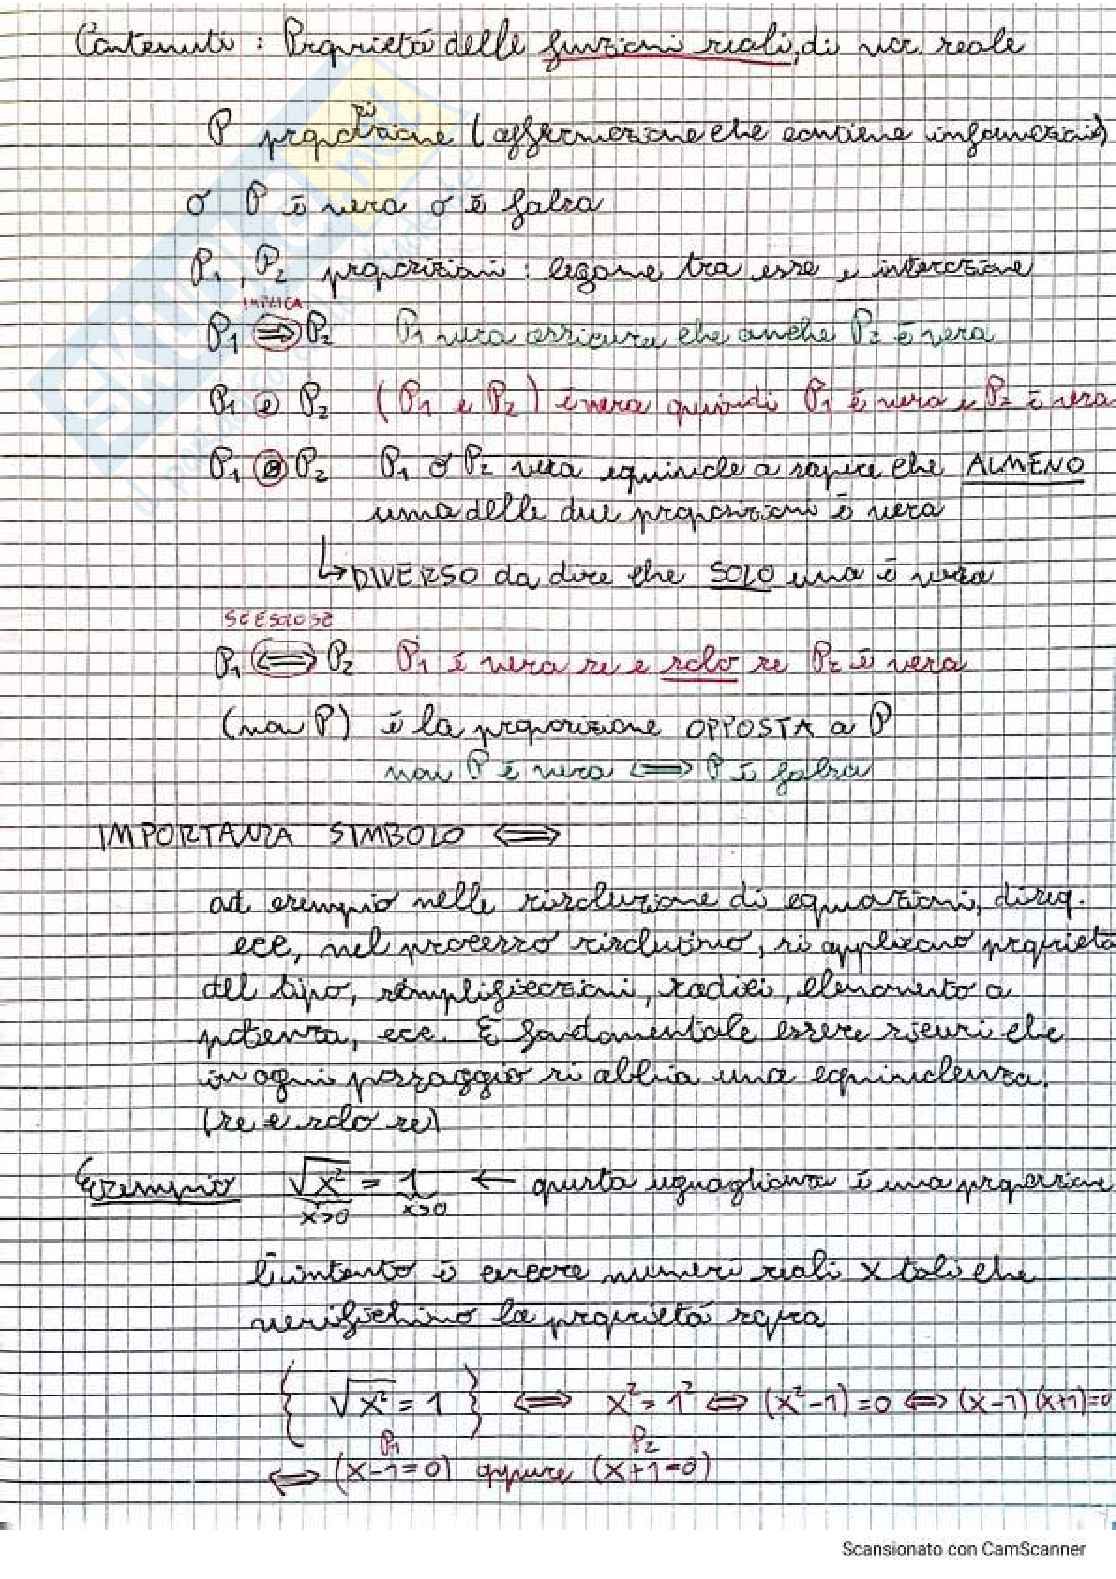 Contenuti: Proprietà delle funzioni reali, di var. reale
P proposizione (affermazione che contiene informazioni)
o P è vera o è falsa
P1, P2 proposizioni: legame tra esse e interazione
IMPLICA
P1 ⟹ P2 P1 vera assicura che anche P2 è vera
P1 e P2 (P1 e P2) è vera quindi P1 è vera e P2 è vera
P1 o P2 P1 o P2 vera equivale a sapere che ALMENO
una delle due proposizioni è vera
↳ DIVERSO da dire che SOLO una è vera
SE E SOLO SE
P1 ⟺ P2 P1 è vera se e solo se P2 è vera
(non P) è la proposizione OPPOSTA a P
non P è vera ⟺ P è falsa
IMPORTANZA SIMBOLO ⟺
ad esempio nelle risoluzione di equazioni, diseq.
ecc, nel processo risolutivo, si applicano proprietà
del tipo, semplificazioni, radici, elevamento a
potenza, ecc. È fondamentale essere sicuri che
in ogni passaggio si abbia una equivalenza.
(se e solo se)
Esempio √x² = 1 ← questa uguaglianza è una proposizione
x>0 x>0
L'intento è cercare numeri reali x tali che
verifichino la proprietà sopra
{ √x² = 1 } ⟺ x² = 1² ⟺ (x²-1) = 0 ⟺ (x-1)(x+1) = 0
P1 P2
⟺ (x-1=0) oppure (x+1=0)
SKUOLA.net
Scansionato con CamScanner